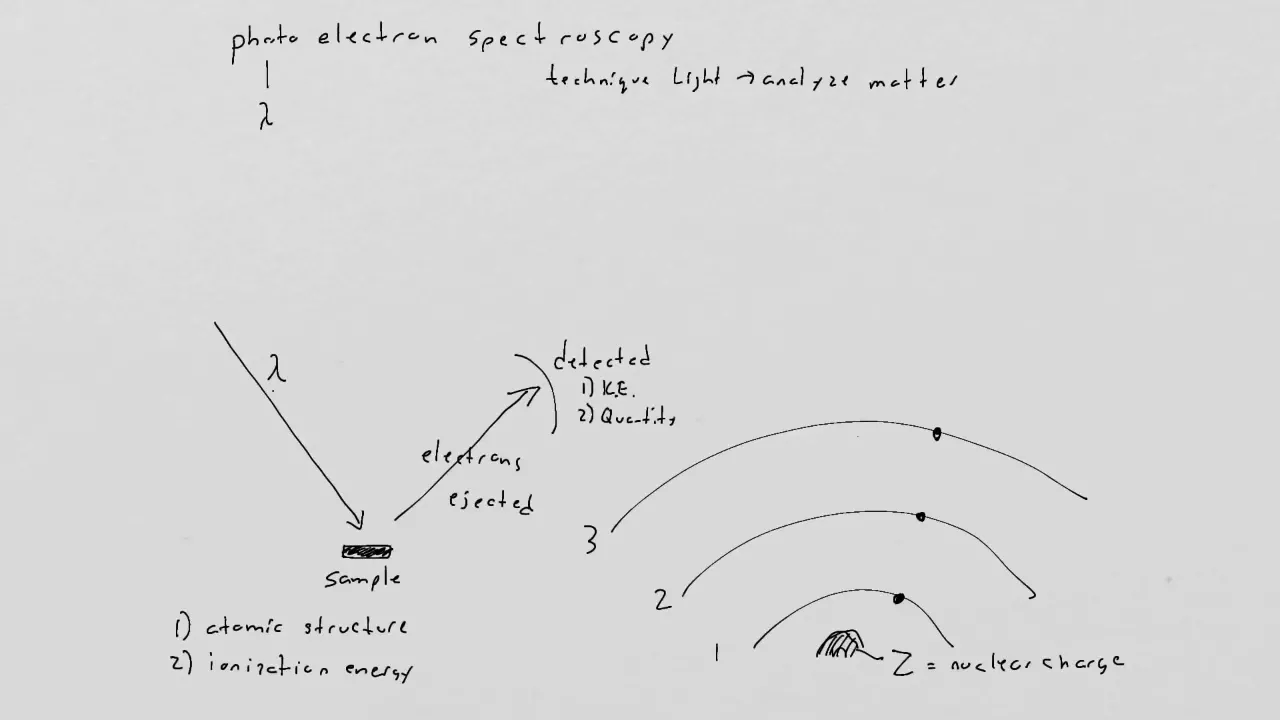 photo electron spectroscopy
technique Light → analyze matter
λ
λ
detected
1) K.E.
2) Quantity
electrons
ejected
3
sample
2
1) atomic structure
1
Z = nuclear charge
2) ionization energy